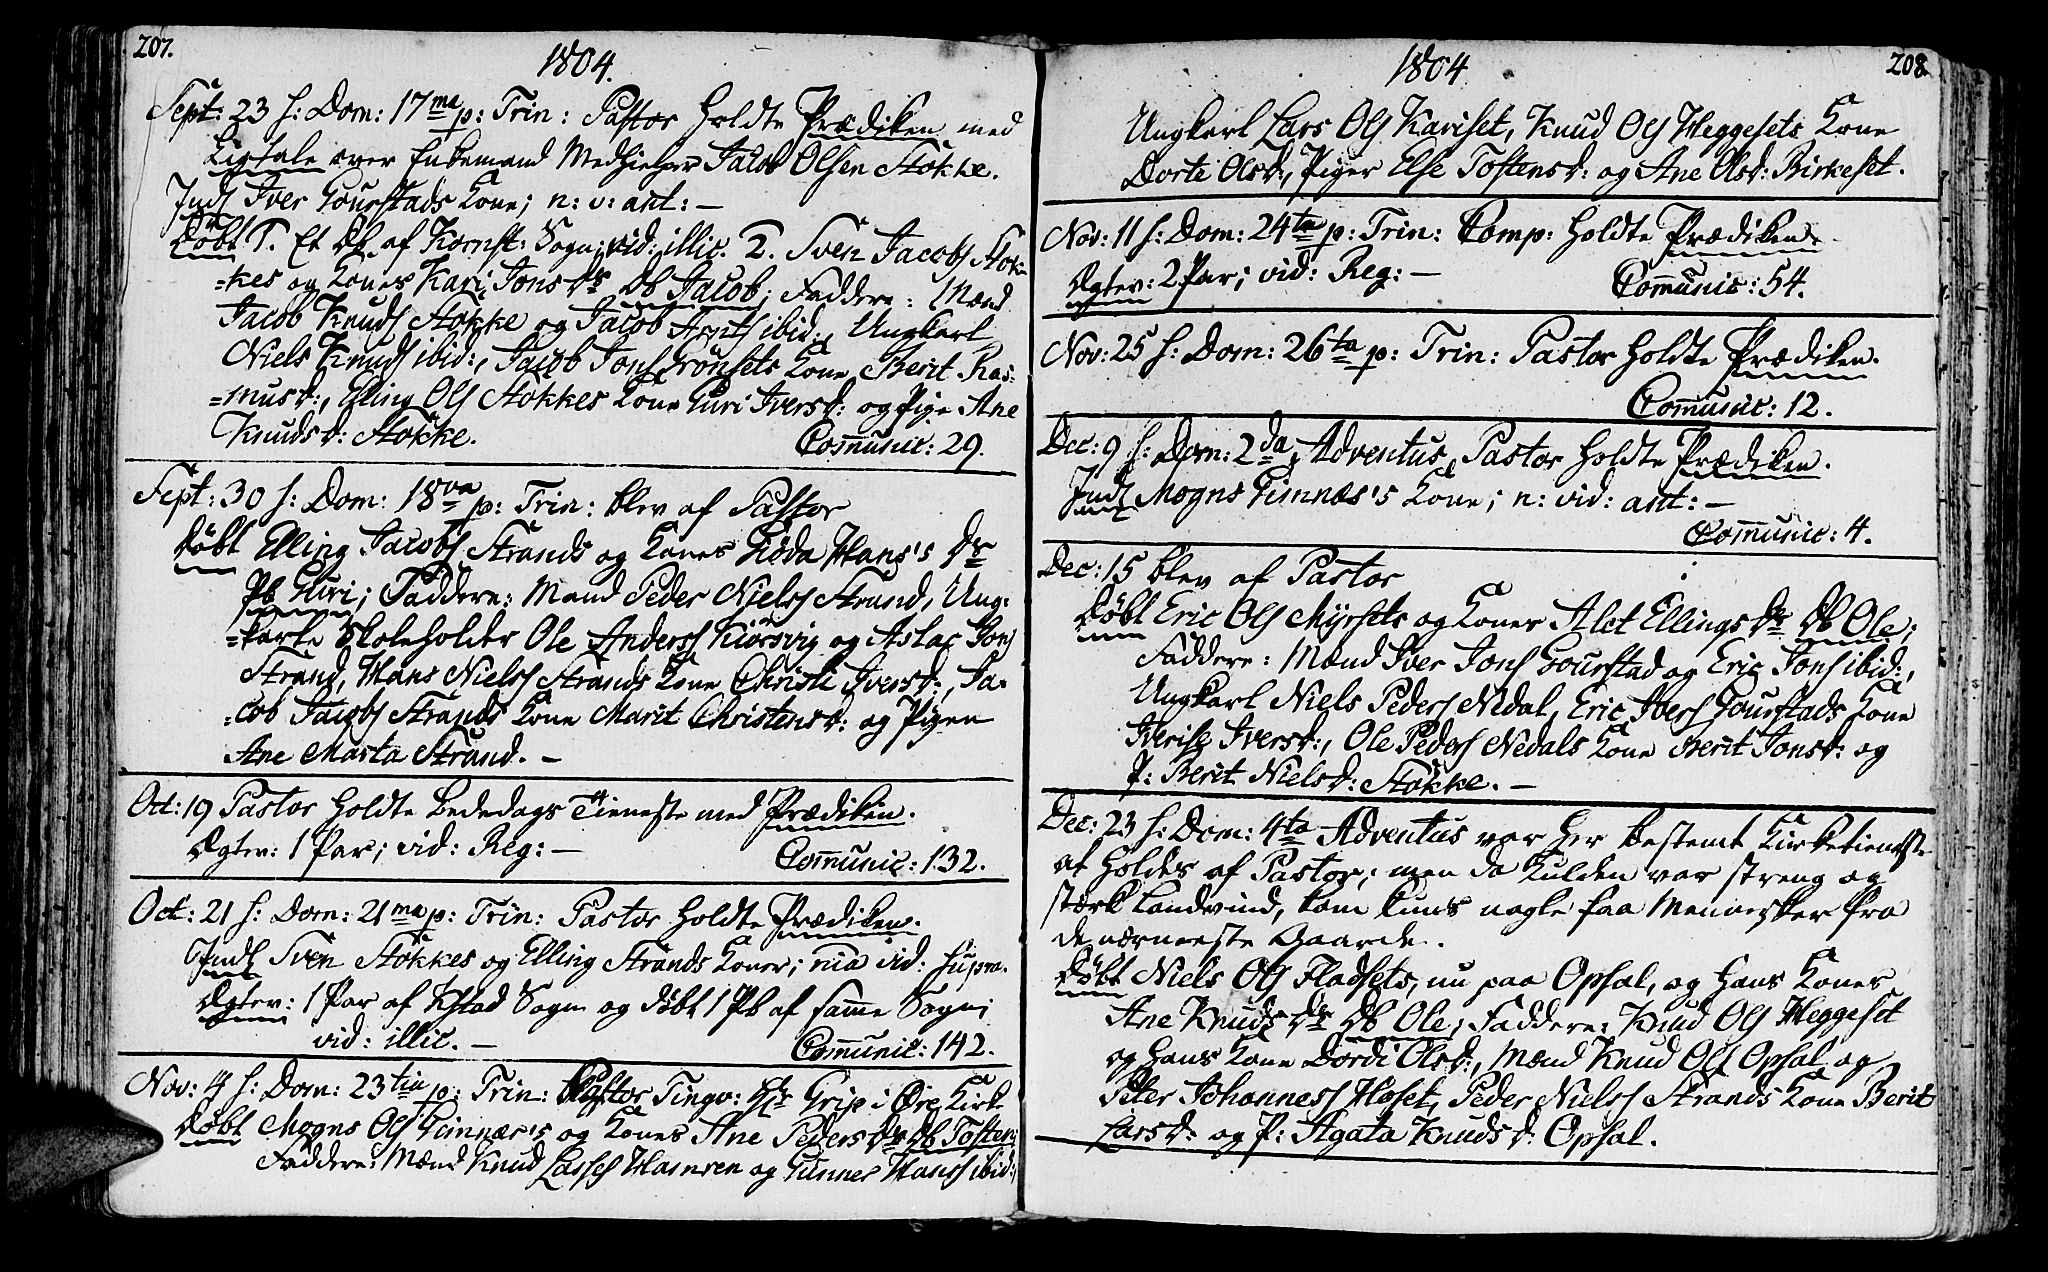 207.
1804.
Sept: 23 s: Dom: 17ma p: Trin: Pastor holdte Prædiken med
Ligtale over Enkemand Medhielper Jacob Olsen Stokke.
Inds Iver Gourstads Kone; n: v: ant: —
Døbt 1. Et Db af Kornst: Sogn; vid: illic. 2. Sven Jacobs Stok-
=kes og Kones Kari Jons Dr Db Jacob; Faddere: Mænd
Jacob Knuds Stokke og Jacob ibid:, Ungkarl
Niels Knuds ibid:, Jacob Jons Grønsets Kone Berit Ras-
=musd:, Elling Ols Stokkes Kone Guri Iversd: og Pige Ane
Knudsd: Stokke. Communic: 29.
Sept: 30 s: Dom: 18va p: Trin: blev af Pastor
Døbt Elling Jacobs Strands og Kones Giøda Hans's Dr
Pb Guri; Faddere: Mænd Peder Niels Strand, Ung-
=karle Skoleholder Ole Anders Kiørsvig og Aslac Jons
Strand, Hans Niels Strands Kone Christi Iversd:, Ja-
=cob Jacobs Strands Kone Marit Christensd: og Pigen
Ane Marta Strand. —
Oct: 19 Pastor holdte Bededags Tieneste med Prædiken.
Ægtev: 1 Par; vid: Reg: — Communic: 132.
Oct: 21 s: Dom: 21ma p: Trin: Pastor holdte Prædiken.
Inds Sven Stokkes og Elling Strands Koner; vid: supra.
Ægtev: 1 Par af Qstad Sogn og døbt 1 Pb af samme Sogn;
vid: illic. — Communic: 142.
Nov: 4 s: Dom: 23tia p: Trin: Pastor Tingv: Hr Grip i Øre Kirk
Døbt Mogns Ols Gimnæs's og Kones Ane Peders Dr Db Tosten;
Faddere: Mænd Knud Lasses Hamren og Gunner Hans ibid:
1804
208
Ungkarl Lars Ols Kariset, Knud Ols Heggesets Kone
Dorte Olsd:, Piger Else Tostensd: og Ane Olsd: Birkeset.
Nov: 11 s: Dom: 24ta p: Trin: Comp: holdte Prædiken.
Ægtev: 2 Par; vid: Reg: — Communic: 54.
Nov: 25 s: Dom: 26ta p: Trin: Pastor holdte Prædiken.
Communic: 12.
Dec: 9 s: Dom: 2da Adventus, Pastor holdte Prædiken.
Inds Mogns Gimnæs's Kone; n: vid: ant: —
Communic: 4.
Dec: 15 blev af Pastor
Døbt Eric Ols Myrsets og Kones Alet Ellings Dr Db Ole;
Faddere: Mænd Iver Jons Gourstad og Eric Jons ibid:,
Ungkarl Niels Peders Nedal, Eric Ivers Gourstads Kone
Iversd:, Ole Peders Nedals Kone Berit Jonsd: og
P: Berit Nielsd: Stokke. —
Dec: 23 s: Dom: 4ta Adventus var her bestemt Kirketieneste
at holdes af Pastor; men da Kulden var streng og
stærk Landvind, kom kuns nogle faa Mennesker fra
de nærmeste Gaarde.
Døbt Niels Ols Fladsets, nu paa Opsal, og hans Kones
Ane Knuds Dr Db Ole; Faddere: Knud Ols Heggeset
og hans Kone Dordi Olsd:, Mænd Knud Ols Opsal og
Peter Johannes Høset, Peder Niels Strands Kone Berit
Larsd: og P: Agata Knudsd: Opsal.